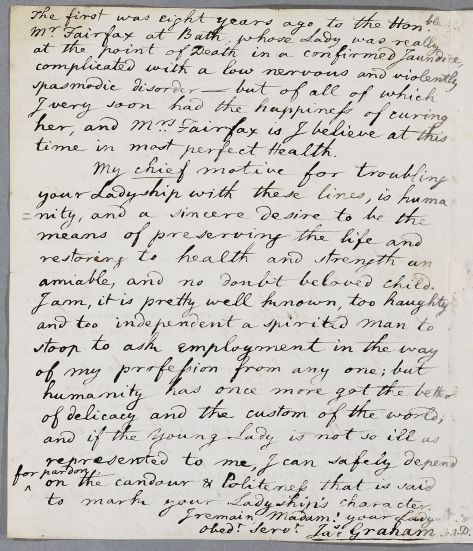 The first was eight years ago to the Hon.ble
Mr. Fairfax at Bath, whose Lady was really
at the point of Death in a confirmed Jaundice,
complicated with a low nervous and violently
spasmodic disorder — but of all of which
I very soon had the happiness of curing
her, and Mrs. Fairfax is I believe at this
time in most perfect Health.
My chief motive for troubling
your Ladyship with these lines, is huma
=nity, and a sincere desire to be the
means of preserving the life and
restoring to health and strength an
amiable, and no doubt beloved child.
I am, it is pretty well known, too haughty
and too independent a spirited man to
stoop to ask employment in the way
of my profession from any one; but
humanity has once more got the better
of delicacy and the custom of the world;
and if the Young Lady is not so ill as
represented to me I can safely depend
for pardon
^ on the candour & Politeness that is said
to mark your Ladyship's character.
I remain Madam! your Lady
obedt. Servt. Jas. Graham M.D.